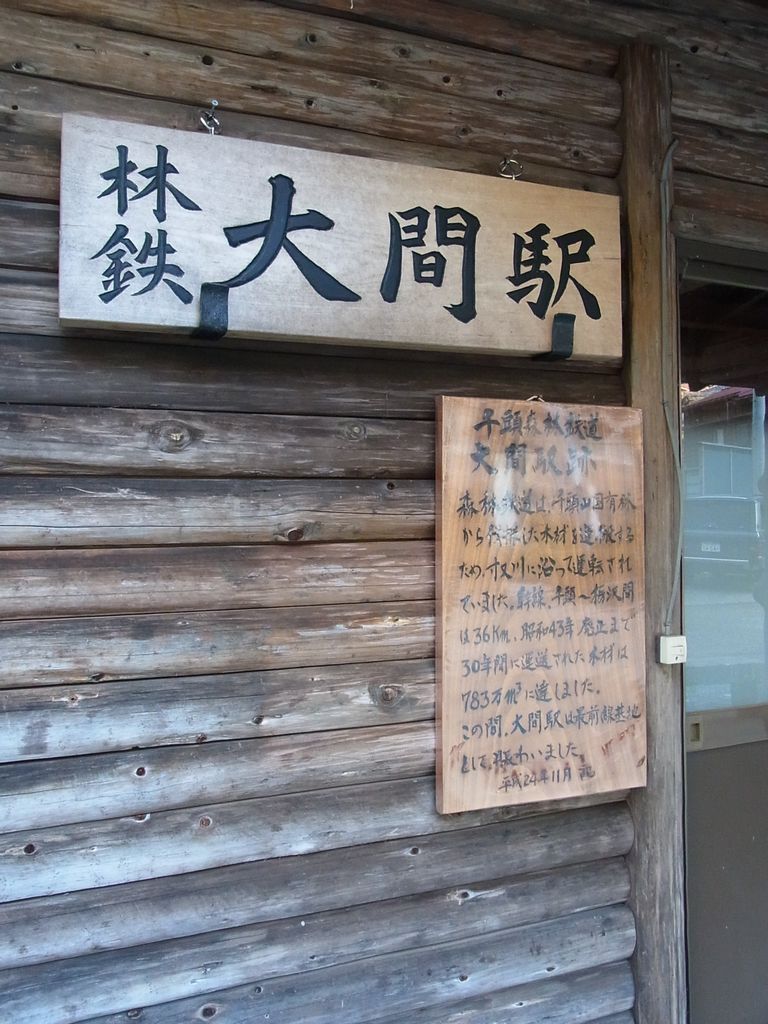 林鉄 大間駅
千頭森林鉄道
大間駅跡
森林鉄道は、千頭山国有林
から伐採した木材を運搬する
ため、寸又川に沿って運転され
ていました。幹線、千頭〜栃沢間
は36Km、昭和43年廃止まで
30年間に運送された木材は
783万m³に達しました。
この間、大間駅は最前線基地
として、賑わいました。
平成24年11月 記